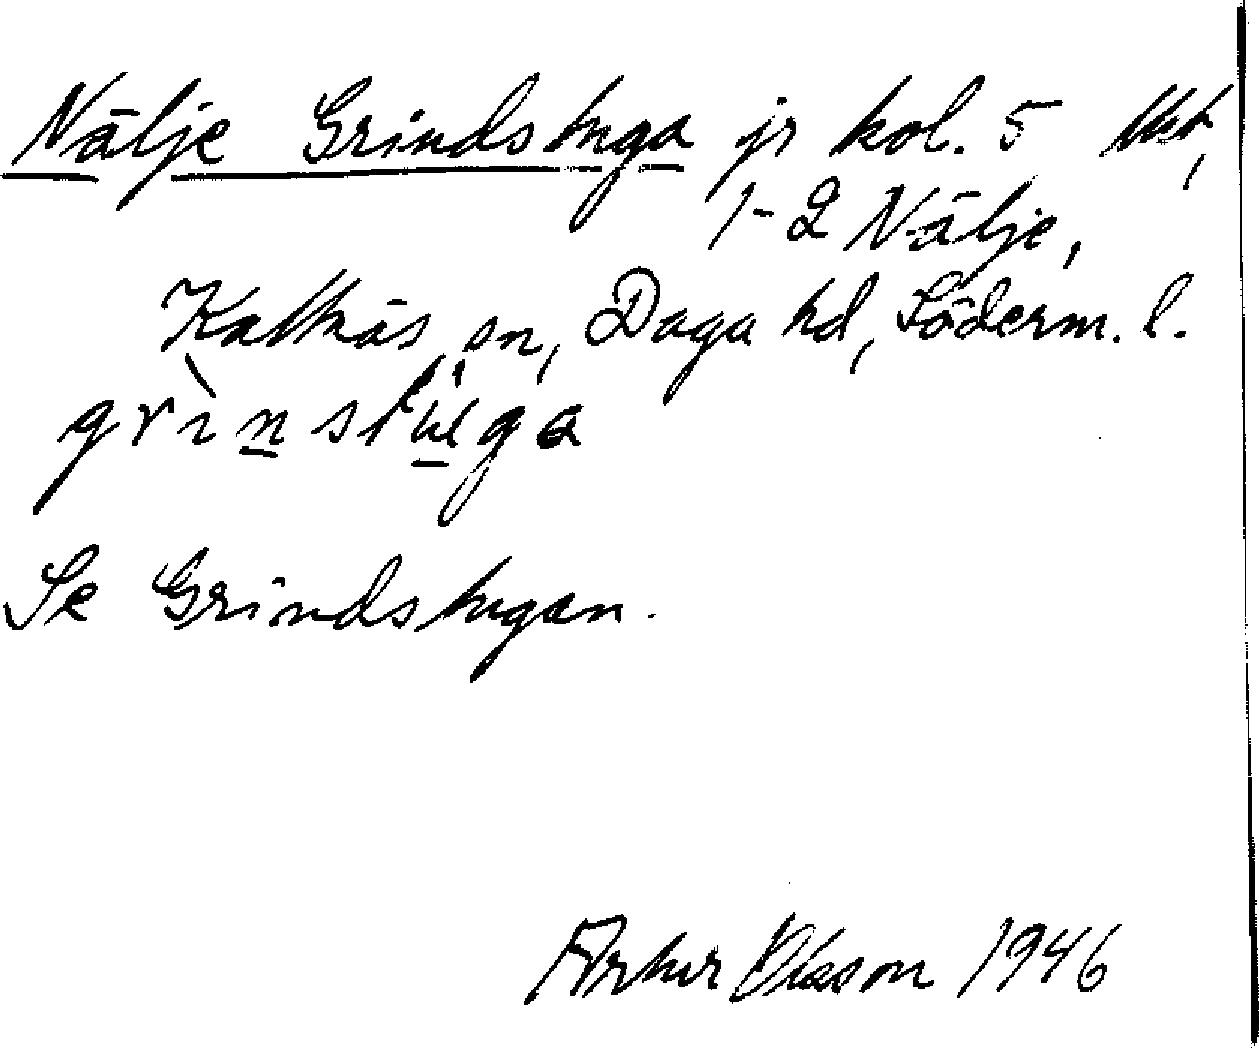 Nälje Grindstuga jr kol. 5
1-2 Nälje,
Kattnäs sn, Daga hd, Söderm. l.
grìnstu̠ga
Se Grindstugan.
Artur Olsson 1946